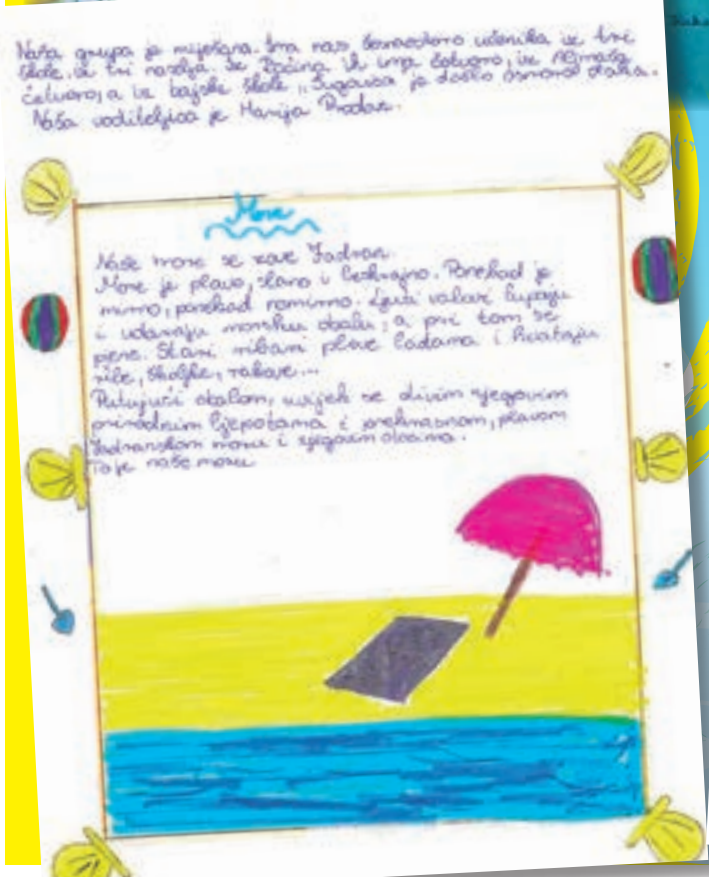 Naša grupa je miješana. Ima nas učenika iz tri
škole, iz tri naselja. Iz Baćina ih ima četvoro, iz Aljmaša
četvoro, a iz bajske škole „Sugovica je došlo osmoro đaka.
Naša voditeljica je Marija Prodan.
More
Naše more se zove Jadran.
More je plavo, slano i beskrajno. Ponekad je
mirno, ponekad nemirno. Ljuti valovi lupaju
i udaraju morsku obalu, a pri tom se
pjene. Stari ribari plove lađama i hvataju
ribe, školjke, rakove...
Putujući obalom, uvijek se divim njegovim
prirodnim ljepotama i prekrasnom, plavom
Jadranskom moru i njegovim otocima.
To je naše more